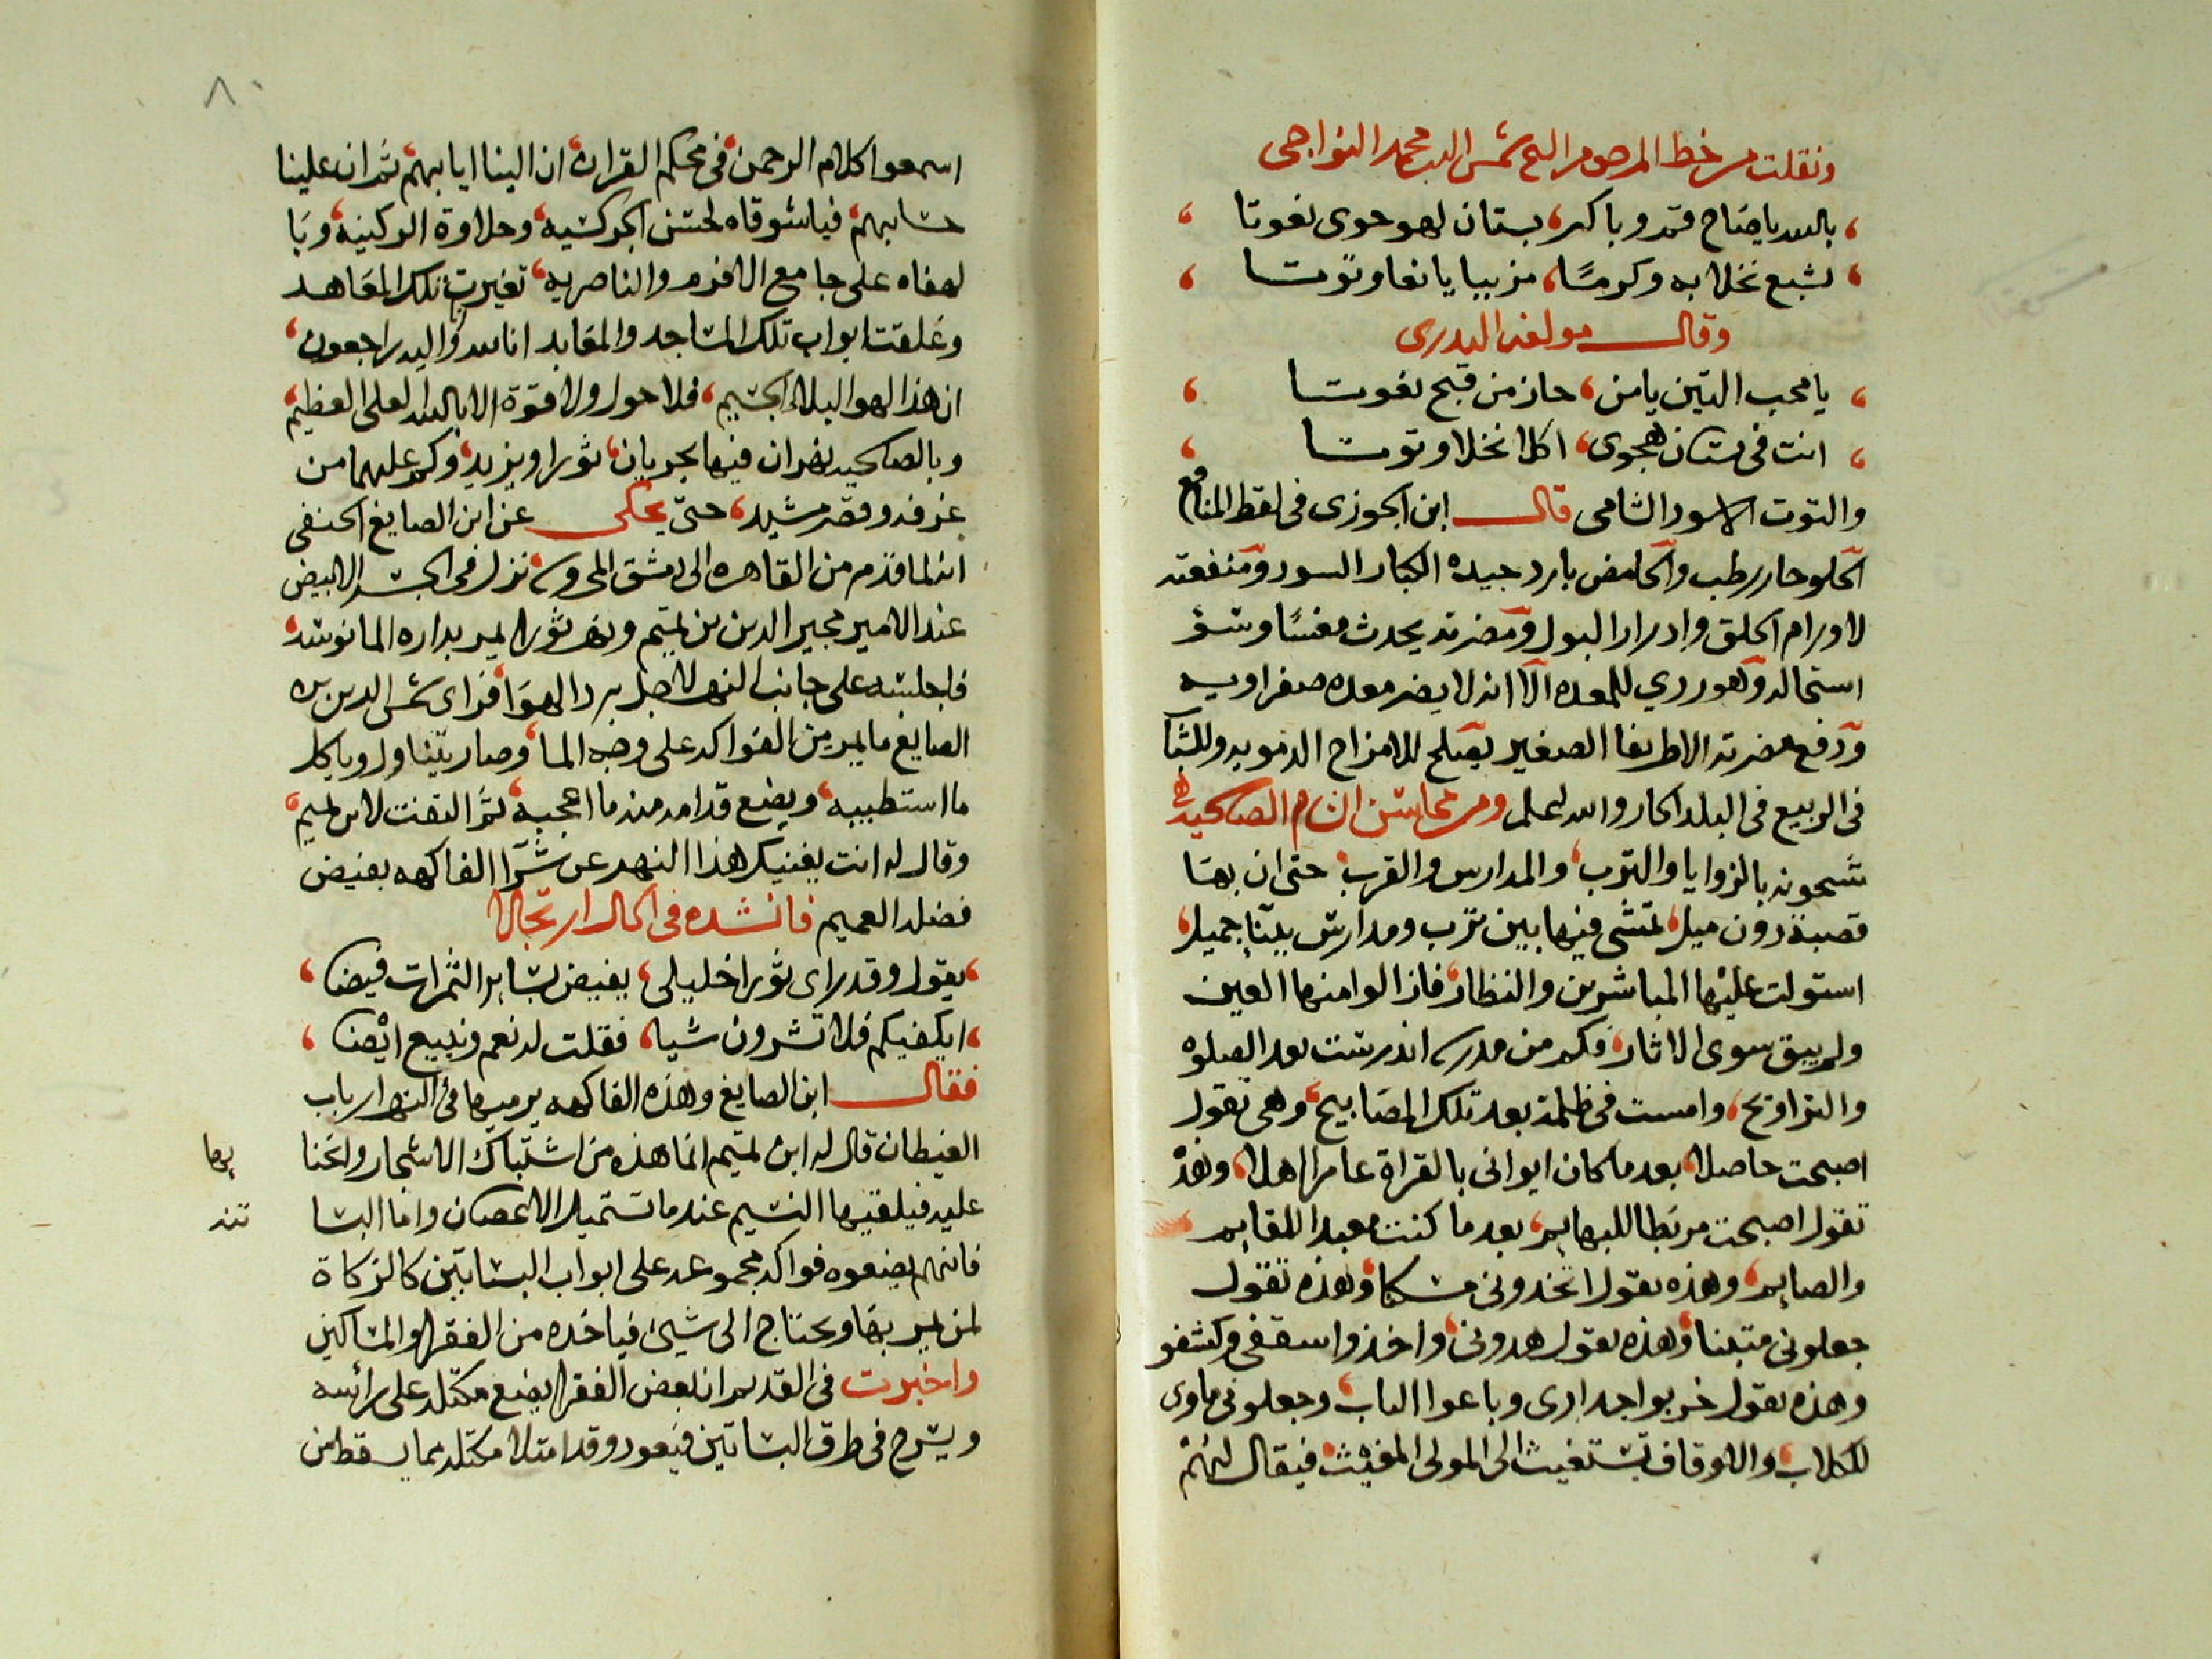 ونقلت من خط المرحوم الشيخ شمس الدين محمد النواجى
بالله يا صاح قم وباكر، بستان لهو حوى نعوتا
لشبع نخلا به وكرما، مزببا يانعا وتوتا
وقال مولفه البدرى
يا محب التين يا من، حاز من قبح نعوتا
انت فى بستان هجوى، اكلا نخلا وتوتا
والتوت الاسود الشامى قال ابن الجوزى فى لقط المنافع
الحلو حار رطب والحامض بارد جيده الكبار السود ومنفعته
لاورام الحلق وادرار البول ومضرته يحدث مغسا وسؤ
استحاله وهو ردي للمعده الا انه لا يضر معده صفراويه
ودفع مضرته الاطريفل الصغير يصلح للامزاج الدمويه وللشباب
فى الربيع فى البلد الحار والله اعلم ومن محاسن الشام الصالحيه
مشحونه بالزوايا والترب، والمدارس والقرب، حتى ان بها
قصبة دون ميل، تمشى فيها بين ترب ومدارس ببنآء جميل،
استولت عليها المباشرين والنظار، فازالوا منها العين
ولم يبق سوى الاثار، فكم من مدرسه اندرست بعد الصلوه
والتراويح، وامست فى ظلمة بعد تلك المصابيح، وهى تقول
اصبحت حاصلا، بعد ما كان ايوانى بالقراة عامرا اهلا، وهذه
تقول اصبحت مربطا للبهايم، بعد ما كنت معبدا للقايم
والصايم، وهذه تقول اتخدونى مسكنا، وهذه تقول
جعلونى متبنا، وهذه تقول هدونى، واخذوا سقفى وكشفو
وهذه تقول خربوا جدارى وباعوا الباب، وجعلونى ماوى
للكلاب، والاوقاف تستغيث الى المولى المغيث، فيقال لهم
٨٠
اسمعوا كلام الرحمن، فى محكم القران، ان الينا ايابهم، ثم ان علينا
حسابهم، فياشوقاه لحسن الجركسيه، وحلاوة الركنيه، ويا
لهفاه على جامع الافرم والناصريه، تغيرت تلك المعاهد
وغلقت ابواب تلك المساجد والمعابد انا لله وانا اليه راجعون،
ان هذا لهو البلا الجسيم، فلا حول ولا قوة الا بالله العلى العظيم،
وبالصالحيه نهران فيها يجريان، ثورا ويزيد، وكم عليهما من
غرفه وقصر مشيد، حتى يحكى عن ابن الصايغ الحنفى
انه لما قدم من القاهره الى دمشق المحروسه نزل فى الجسر الابيض
عند الامير مجير الدين بن تميم ونهر ثورا يمر بداره المانوسه،
فاجلسه على جانب النهر لاجل برد الهوا، فراى شمس الدين بن
الصايغ ما يمر من الفواكه على وجه الما، وصار يتناول وياكل
ما استطيبه، ويضع قدامه منه ما اعجبه، ثم التفت لابن تميم،
وقال له انت يغنيك هذا النهر عن شرآ الفاكهه بفيض
فضله العميم فانشده فى الحال ارتجالا
يقول وقد راى ثورا خليلى، يفيض بساير الثمرات فيضا،
ايكفيكم فلا تشرون شيا، فقلت له نعم ونبيع ايضا،
فقال ابن الصايغ وهذه الفاكهه يرميها فى النهر ارباب
الغيطان قال له ابن تميم انما هذه من اشتباك الاشجار وانحنا
يها
عليه فيلقيها النسيم عند ما تستميل الاغصان واما البسا
تنه
فانهم يضعوه فواكه مجموعه على ابواب البساتين كالزكاة
لمن يمر بها ويحتاج الى شيئ فياخذه من الفقرا والمساكين
واخبرت فى القديم ان بعض الفقرا يضع مكتله على رائسه
ويسرح فى طرق البساتين فيعود وقد امتلا مكتله مما يسقط من